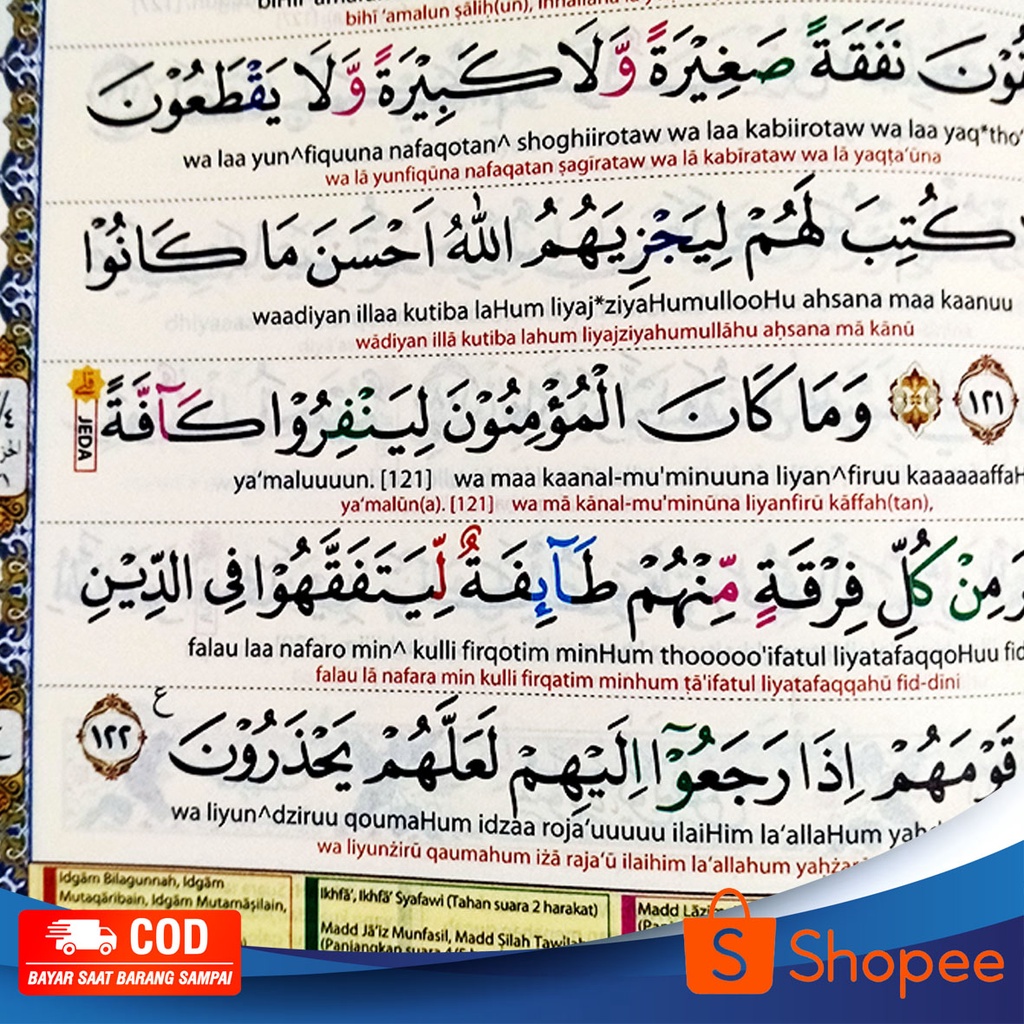 bihī 'amalun ṣāliḥ(un),
نَفَقَةً صَغِيْرَةً وَّلَا كَبِيْرَةً وَّلَا يَقْطَعُوْنَ
wa laa yun^fiquuna nafaqotan^ shoghiirotaw wa laa kabiirotaw wa laa yaq*tho'
wa lā yunfiqūna nafaqatan ṣagīrataw wa lā kabīrataw wa lā yaqṭa'ūna
كُتِبَ لَهُمْ لِيَجْزِيَهُمُ اللّٰهُ اَحْسَنَ مَا كَانُوْا
waadiyan illaa kutiba laHum liyaj*ziyaHumullooHu ahsana maa kaanuu
wādiyan illā kutiba lahum liyajziyahumullāhu aḥsana mā kānū
١٢١ وَمَا كَانَ الْمُؤْمِنُوْنَ لِيَنْفِرُوْا كَاۤفَّةً ۗ
JEDA
ya'maluuuun. [121] wa maa kaanal-mu'minuuna liyan^firuu kaaaaaaffaH
ya'malūn(a). [121] wa mā kānal-mu'minūna liyanfirū kāffah(tan),
مِنْ كُلِّ فِرْقَةٍ مِّنْهُمْ طَاۤىِٕفَةٌ لِّيَتَفَقَّهُوْا فِى الدِّيْنِ
falau laa nafaro min^ kulli firqotim minHum thooooo'ifatul liyatafaqqoHuu fid
falau lā nafara min kulli firqatim minhum ṭā'ifatul liyatafaqqahū fid-dīni
قَوْمَهُمْ اِذَا رَجَعُوْٓا اِلَيْهِمْ لَعَلَّهُمْ يَحْذَرُوْنَ ࣖ ١٢٢
wa liyun^dziruu qoumaHum idzaa roja'uuuuu ilaiHim la'allaHum
wa liyunżirū qaumahum iżā raja'ū ilaihim la'allahum
Idgām Bilagunnah, Idgām
Mutaqāribain, Idgām Mutamāṡilain,
Ikhfā', Ikhfā' Syafawi (Tahan suara 2 harakat)
Madd Jā'iz Munfasil, Madd Ṣilah
Madd
COD
BAYAR SAAT BARANG SAMPAI
S Shopee